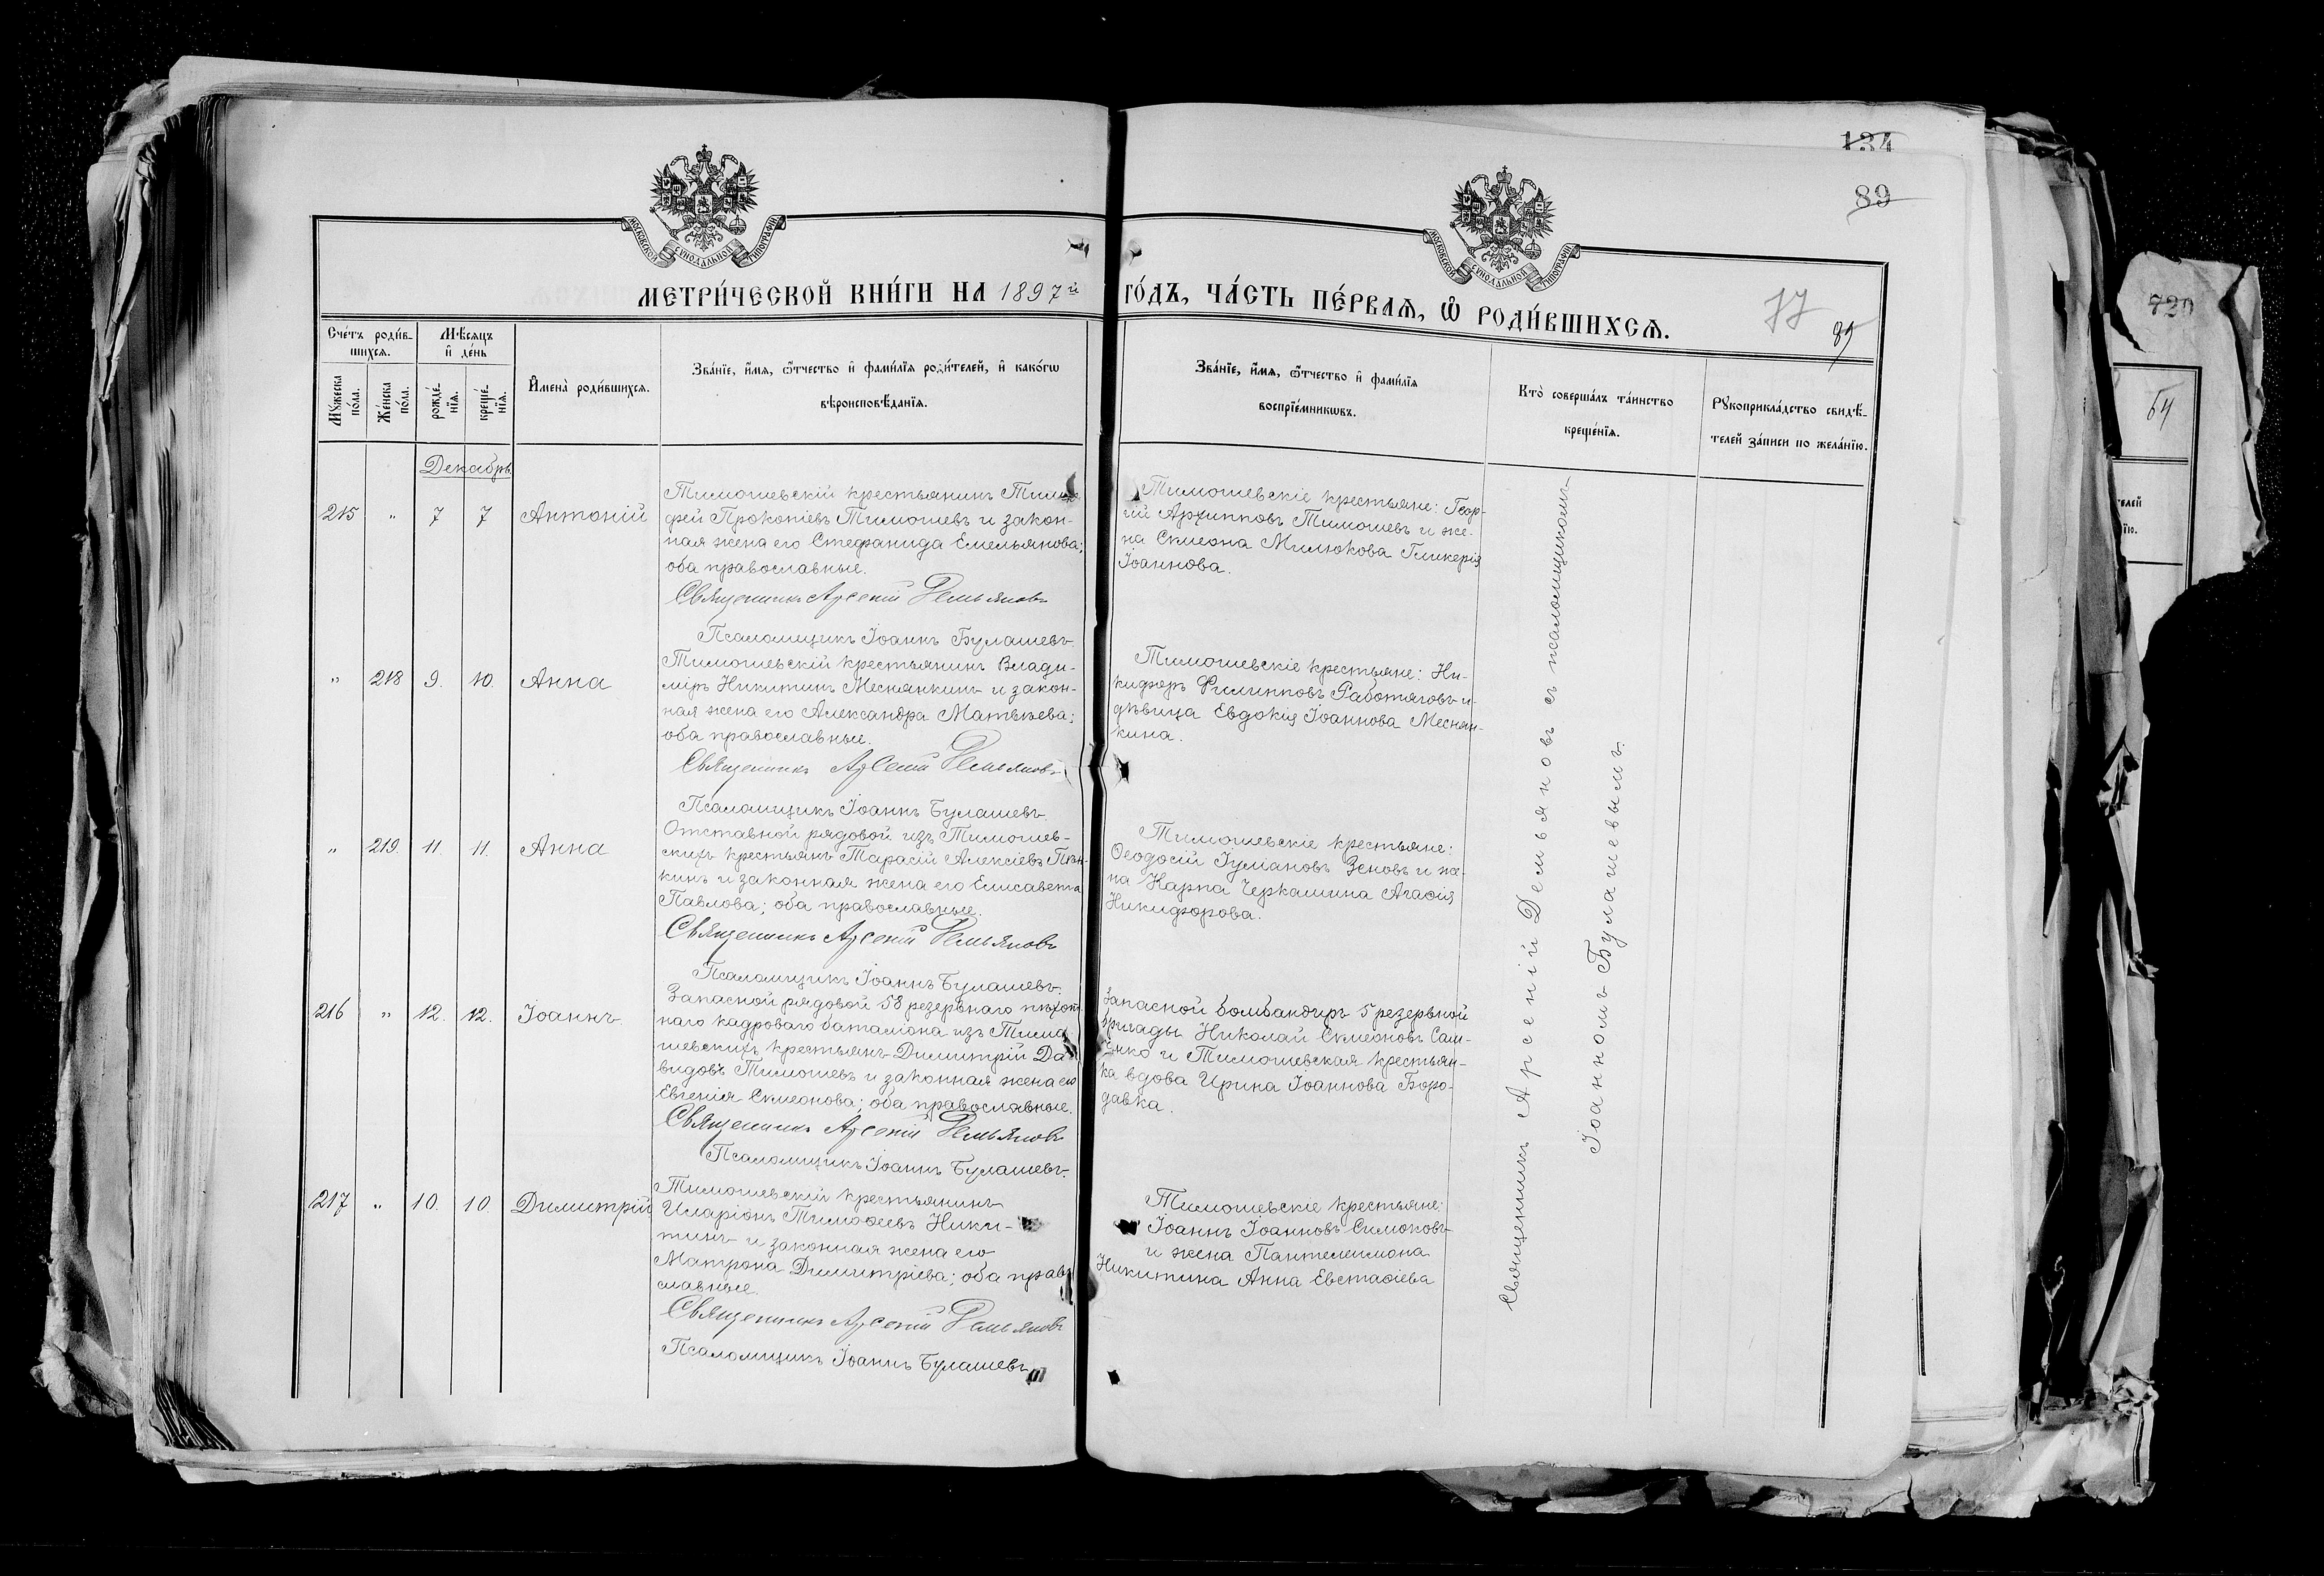 134
89
МОСКОВСКОЙ СѴНОДАЛЬНОЙ ТИПОГРАФІИ
МОСКОВСКОЙ СѴНОДАЛЬНОЙ ТИПОГРАФІИ
МЕТРИ́ЧЕСКОЙ КНИ́ГИ НА 1897й
ГО́ДЪ, ЧА́СТЬ ПЕ́РВАѦ, Ѽ РОДИ́ВШИХСѦ.
77
85
720
64
Сче́тъ роди́в-
шихсѧ.
Мѣ́сѧцъ
и҆ де́нь
Мꙋ́жеска
по́ла.
Же́нска
по́ла.
рожде́-
нїѧ.
креще́-
нїѧ.
И҆мена̀ роди́вшихсѧ.
Зва́нїе, и҆́мѧ, ѻ҆́тчество и҆ фами́лїѧ роди́телей, и҆ како́гѡ
вѣроисповѣ́данїѧ.
Зва́нїе, и҆́мѧ, ѻ҆́тчество и҆ фами́лїѧ
воспрїе́мникѡвъ.
Кто̀ соверша́лъ та́инство
креще́нїѧ.
Рꙋкоприкла́дство свидѣ́-
телей за́писи по жела́нїю.
телей
їю.
Декабрь.
215 " 7 7 Антоній
Тимошевскій крестьянинъ Тимо-
фей Прокопіевъ Тимошевъ и закон-
ная жена его Стефанида Емельянова;
оба православные.
Священникъ Арсеній Демьяновъ
Псаломщикъ Іоаннъ Булашевъ
Тимошевскіе крестьяне: Геор-
гій Архипповъ Тимошевъ и же-
на Симеона Милюкова Гликерія
Іоаннова.
" 218 9. 10. Анна
Тимошевскій крестьянинъ Влади-
міръ Никитинъ Меснянкинъ и закон-
ная жена его Александра Матѳеева;
оба православные.
Священникъ Арсеній Демьяновъ
Псаломщикъ Іоаннъ Булашевъ.
Тимошевскіе крестьяне: Ни-
кифоръ Филипповъ Работяговъ и
дѣвица Евдокія Іоаннова Меснян-
кина.
" 219. 11. 11. Анна
Отставной рядовой изъ Тимошев-
скихъ крестьянъ Тарасій Алексіевъ Пѣн-
кинъ и законная жена его Елисавета
Павлова; оба православные.
Священникъ Арсеній Демьяновъ
Псаломщикъ Іоаннъ Булашевъ.
Тимошевскіе крестьяне:
Ѳеодосій Іуліановъ Зеновъ и же-
на Карпа Черкашина Агаѳія
Никифорова.
216 " 12. 12. Іоаннъ
Запасной рядовой 58 резервнаго пѣхот-
наго кадроваго баталіона изъ Тимо-
шевскихъ крестьянъ Димитрій Да-
видовъ Тимошевъ и законная жена его
Евгенія Симеонова; оба православные.
Священникъ Арсеній Демьяновъ
Псаломщикъ Іоаннъ Булашевъ.
Запасной бомбандиръ 5 резервной
бригады Николай Симеоновъ
и Тимошевская крестьян-
ка вдова Ирина Іоаннова Боро-
давка.
217 " 10. 10. Димитрій
Тимошевскій крестьянинъ
Иларіонъ Тимоѳеевъ Ники-
тинъ и законная жена его
Матрона Димитріева; оба право-
славные.
Священникъ Арсеній Демьяновъ
Псаломщикъ Іоаннъ Булашевъ.
Тимошевскіе крестьяне:
Іоаннъ Іоанновъ Симоновъ
и жена Пантелеимона
Никитина Анна Евстаѳіева
Священникъ Арсеній Демьяновъ съ псаломщикомъ
Іоанномъ Булашевымъ.